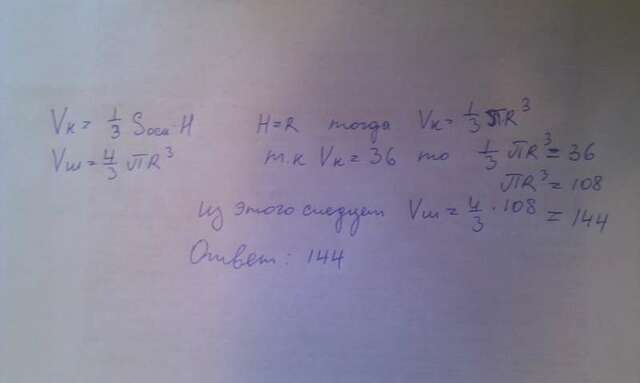 Vк = 1/3 Sосн · H     H=R тогда Vк = 1/3 πR³
Vш = 4/3 πR³     т.к Vк = 36 то 1/3 πR³ = 36
πR³ = 108
из этого следует Vш = 4/3 · 108 = 144
Ответ: 144